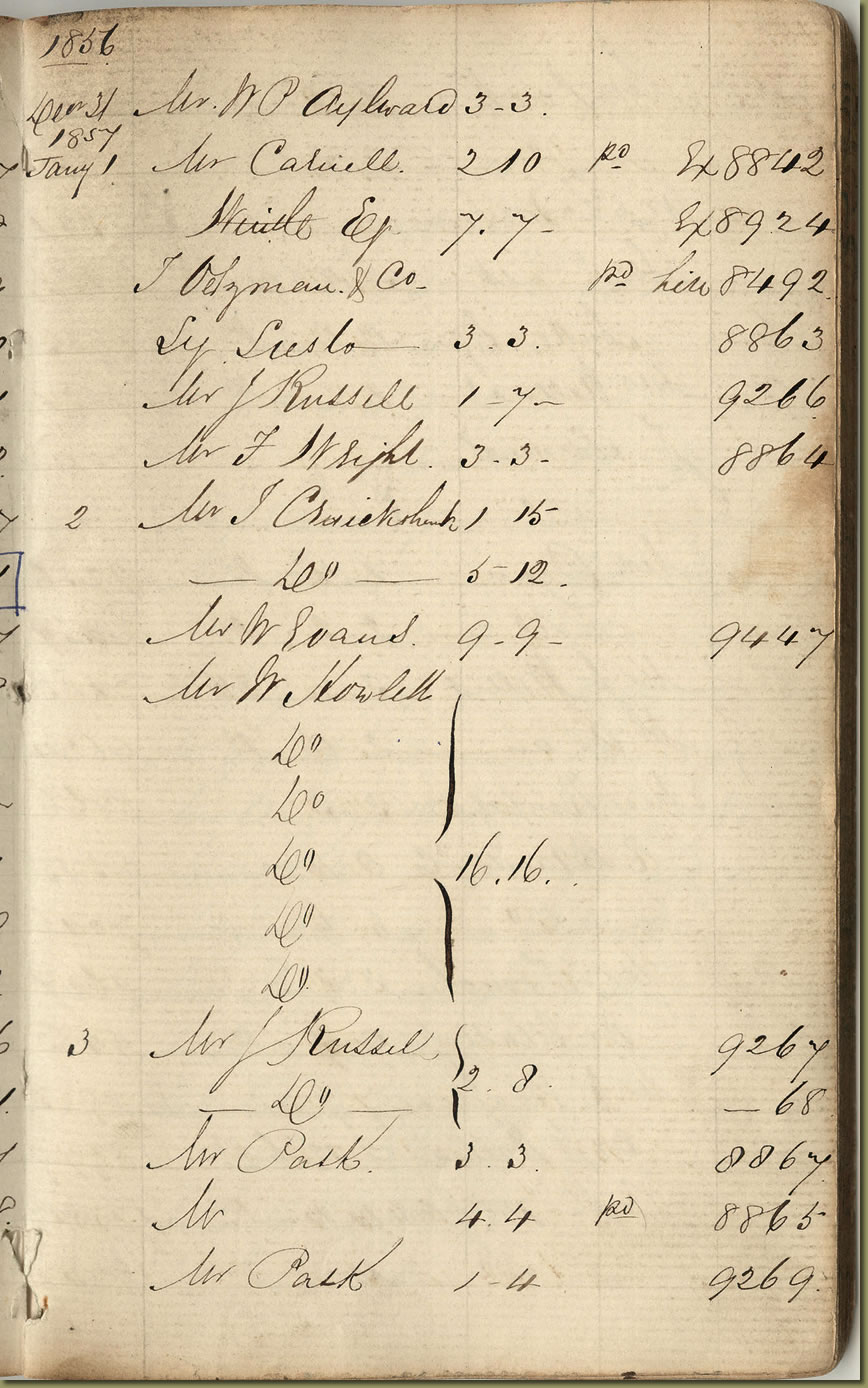 1856
Decr 31 Mr. W P Aylward 3-3.
1857
Jany 1 Mr Carvell. 2 10 pd Ex 8842
Ex 7. 7- Ex 8924
& Co- pd hire 8492
3. 3. 8863
Mr J Russell 1-7- 9266
Mr F Wright. 3-3- 8864
2 Mr J Cruickshank 1 15
— Do — 5-12.
Mr W Evans. 9-9- 9447
Mr W Howlett
Do
Do
Do 16.16.
Do
Do
3 Mr J Russell 9267
2. 8.
— Do — — 68
Mr Pask. 3. 3. 8867
Mr 4. 4 pd 8865
Mr Pask 1-4 9269.